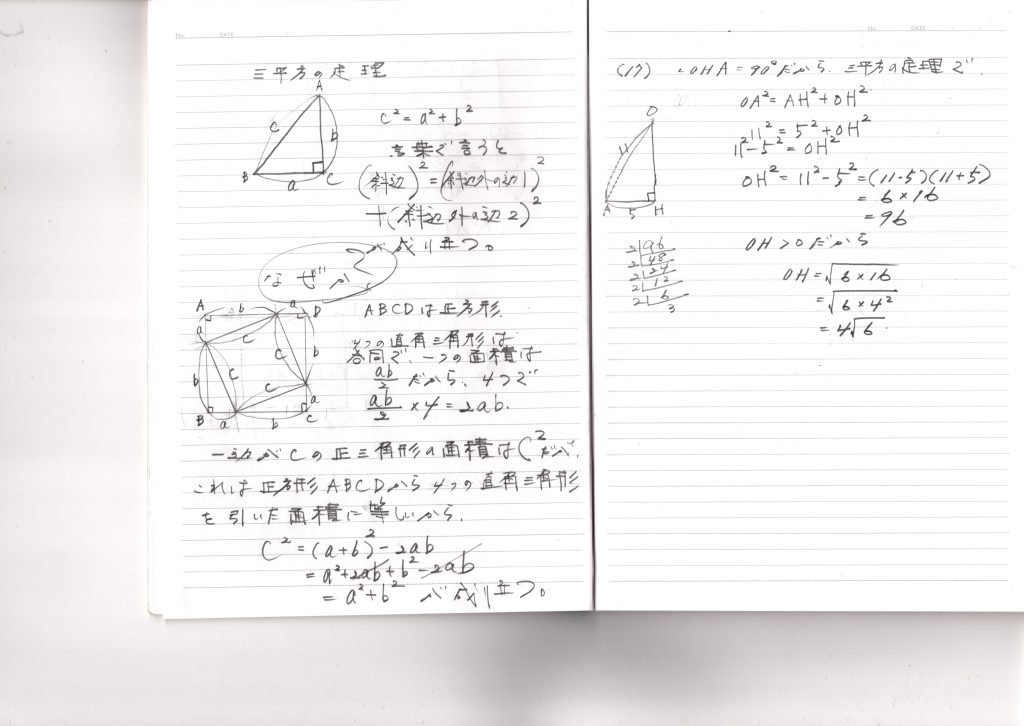 No. DATE
三平方の定理
A
c
b
B
a
C
c² = a² + b²
言葉で言うと
(斜辺)² = (斜辺外の辺1)²
+ (斜辺外の辺2)²
が成り立つ。
なぜか?
A b a D
a c b
c
b c c a
B a b C
ABCDは正方形.
4つの直角三角形は
合同で、一つの面積は
ab/2 だから、4つで
ab/2 × 4 = 2ab.
一辺がcの正三角形の面積はC²だが、
これは正方形ABCDから4つの直角三角形
を引いた面積に等しいから,
C² = (a+b)² - 2ab
= a² + 2ab + b² - 2ab
= a² + b² が成り立つ。
No. DATE
(17) ∠OHA = 90°だから、三平方の定理で
O
11
A 5 H
OA² = AH² + OH²
11² = 5² + OH²
11² - 5² = OH²
OH² = 11² - 5² = (11-5)(11+5)
= 6 × 16
= 96
2 96
2 48
2 24
2 12
2 6
3
OH > 0 だから
OH = √6 × 16
= √6 × 4²
= 4√6.